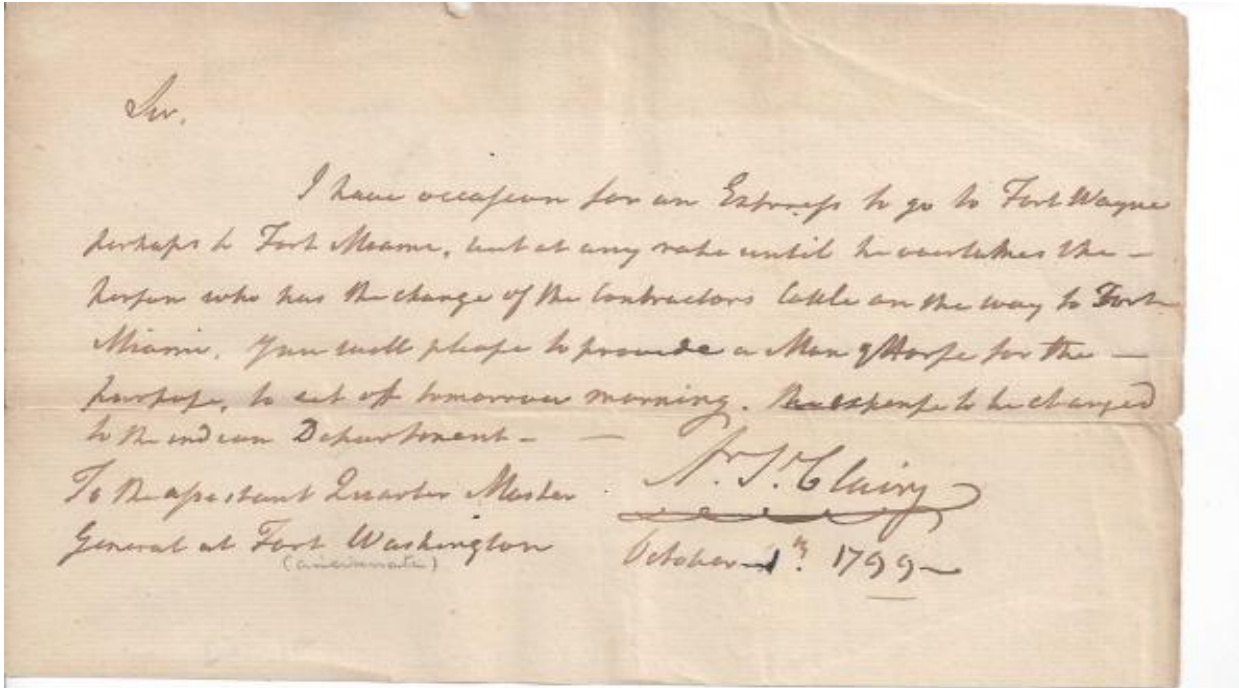 Sir,
I have occasion for an Express to go to Fort Wayne
perhaps to Fort Miami, but at any rate until he overtakes the –
person who has the charge of the Contractors Cattle on the way to Fort
Miami. You will please to provide a Man & Horse for the –
purpose, to set off tomorrow morning. The expense to be charged
to the indian Department – –
To the assistant Quarter Master
General at Fort Washington
(Cincinnati)
Ar. St. Clair
October 1th. 1799 –